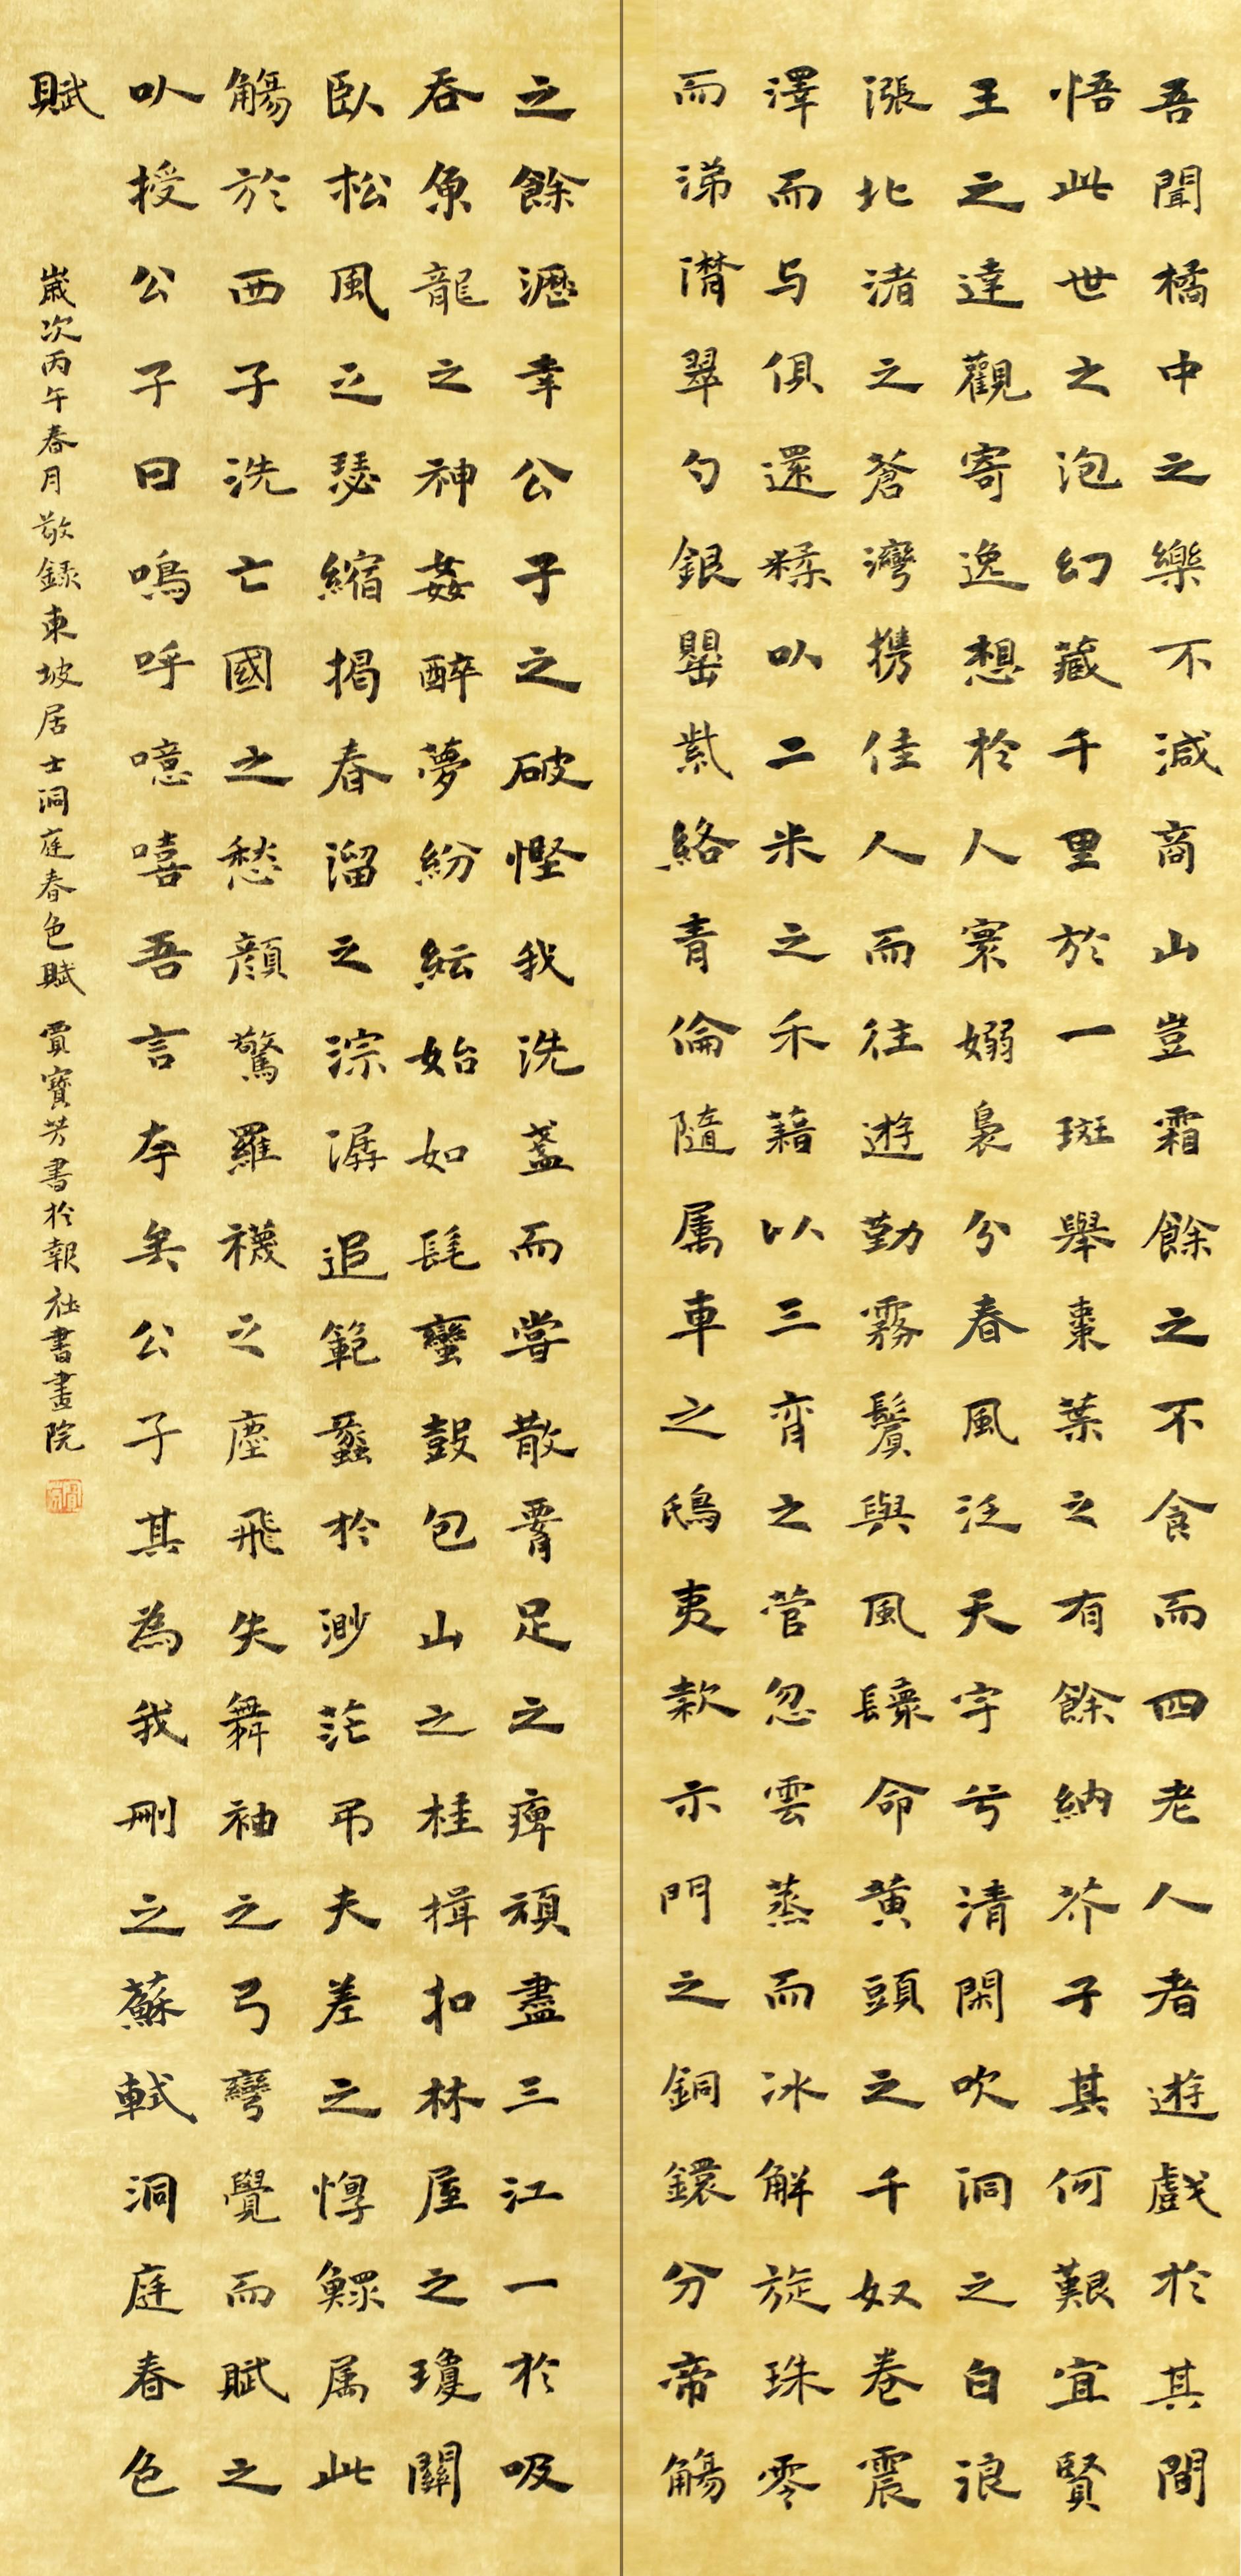 吾聞橘中之樂不減商山豈霜餘之不食而四老人者遊戲於其間
悟此世之泡幻藏千里於一斑舉棗葉之有餘納芥子其何艱宜賢
王之達觀寄逸想於人寰嫋裊兮春風泛天宇兮清閑吹洞之白浪
漲北渚之蒼灣携佳人而往遊勤霧鬢與風鬟命黄頭之千奴卷震
澤而与俱還糅以二米之禾藉以三脊之菅忽雲蒸而冰解旋珠零
而涕潸翠勺銀罌紫絡青倫隨属車之鴟夷款示門之銅鐶分帝觴
之餘瀝幸公子之破慳我洗盞而嘗散腰足之痺頑盡三江一於吸
吞魚龍之神姦醉夢紛紜始如髦蠻鼓包山之桂揖扣林屋之瓊關
臥松風之瑟縮揭春溜之淙潺追範蠡於渺茫吊夫差之惸鰥属此
觴於西子洗亡國之愁顏驚羅襪之塵飛失舞袖之弓彎覺而賦之
以授公子曰鳴呼噫嘻吾言夸矣公子其為我刪之蘇軾洞庭春色
賦
歲次丙午春月敬錄東坡居士洞庭春色賦 賈寶芳書於報社書畫院